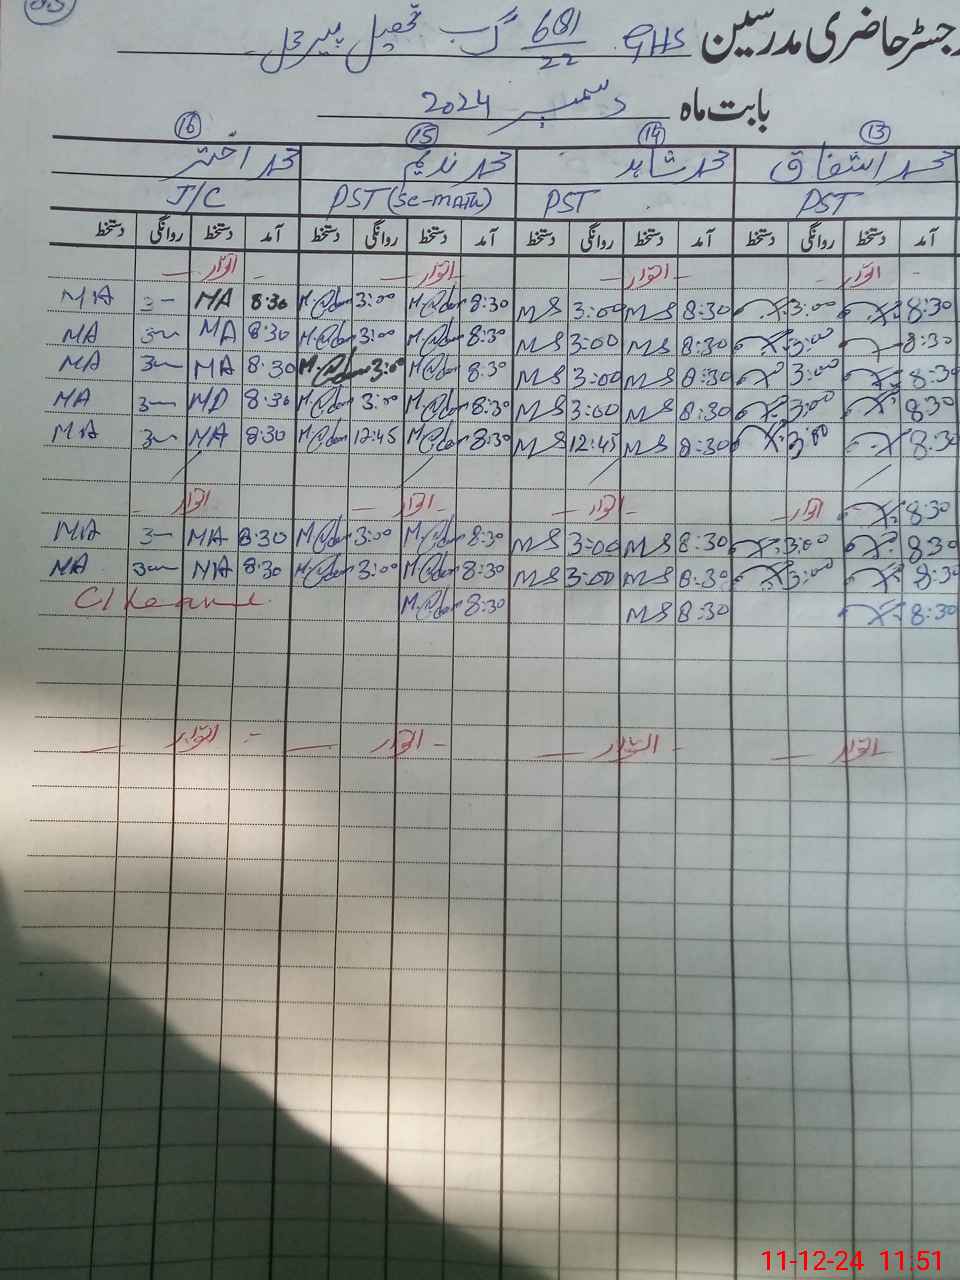 رجسٹر حاضری مدرسین GHS 681/22 گ ب تحصیل پیر محل
بابت ماہ دسمبر 2024
13 14 15 16
محمد اشفاق محمد شاہد محمد ندیم محمد اختر
PST PST PST (Sc-MATH) J/C
آمد دستخط روانگی دستخط آمد دستخط روانگی دستخط آمد دستخط روانگی دستخط آمد دستخط روانگی دستخط
اتوار اتوار اتوار اتوار
8:30 3:00 8:30 MS 3:00 MS 8:30 3:00 8:30 MA 3 MA
8:30 3:00 8:30 MS 3:00 MS 8:30 3:00 8:30 MA 3 MA
8:30 3:00 8:30 MS 3:00 MS 8:30 3:00 8:30 MA 3 MA
8:30 3:00 8:30 MS 3:00 MS 8:30 3:00 8:30 3 MA
8:30 3:00 8:30 MS 12:45 MS 8:30 12:45 8:30 MA 3 MA
8:30 اتوار اتوار اتوار اتوار
8:30 3:00 8:30 MS 3:00 MS 8:30 3:00 8:30 MA 3 MA
8:30 3:00 8:30 MS 3:00 MS 8:30 3:00 8:30 MA 3 MA
8:30 8:30 MS 8:30 C/Leave
اتوار اتوار اتوار اتوار
11-12-24 11:51